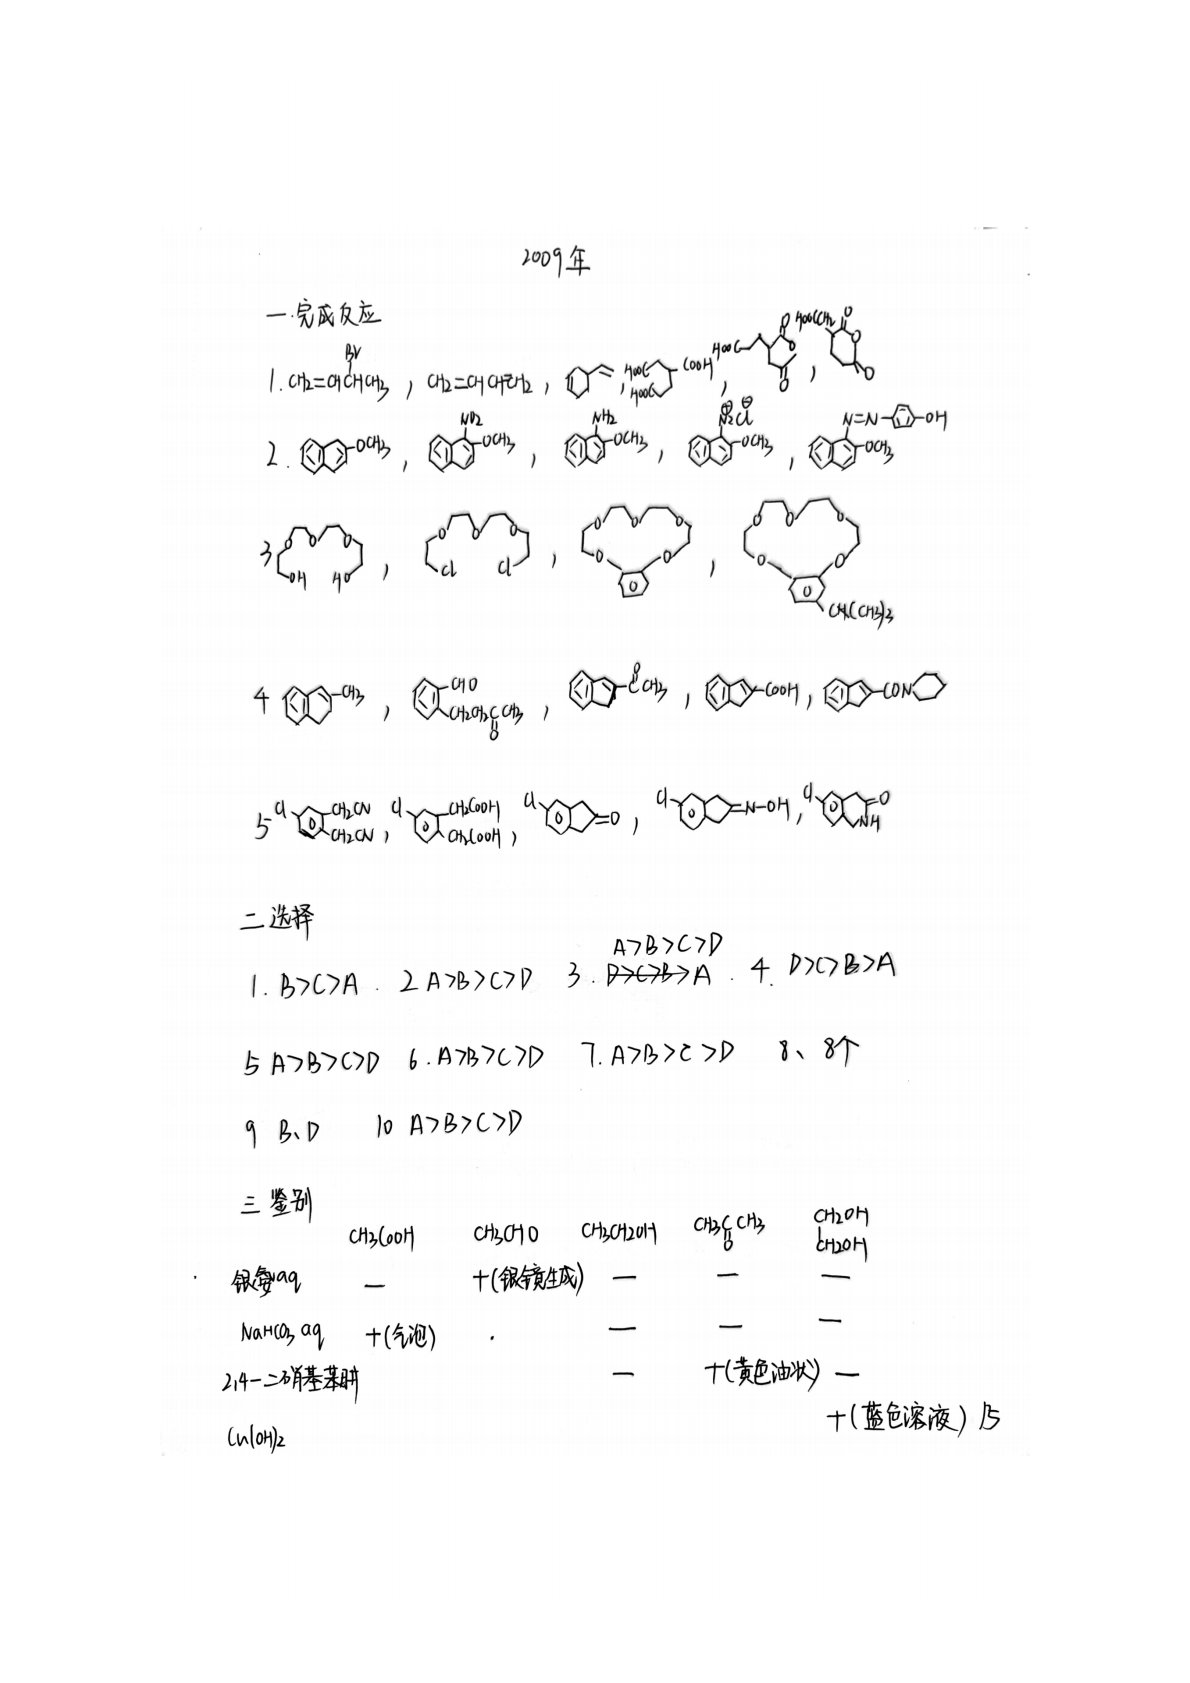 2009年
一.完成反应
Br
1. CH2=CHCHCH3 , CH2=CHCH=CH2 , , HOOC COOH HOOC , HOOC O O O , HOOCCH2 O O O
2. OCH3 , NO2 OCH3 , NH2 OCH3 , N2Cl ⊕ ⊖ OCH3 , N=N OH OCH3
3 O O O OH HO , O O O Cl Cl , O O O O O , O O O O O CH(CH3)2
4 CH3 , CHO CH2CH2CCH3 O , O CCH3 , COOH , CON
5 Cl CH2CN CH2CN , Cl CH2COOH CH2COOH , Cl =O , Cl =N-OH , Cl O NH
二选择
A>B>C>D
1. B>C>A . 2 A>B>C>D 3. D>C>B>A . 4. D>C>B>A
5 A>B>C>D 6. A>B>C>D 7. A>B>C>D 8、8个
9 B、D 10 A>B>C>D
三 鉴别
CH3COOH CH3CHO CH3CH2OH CH3CCH3 O CH2OH CH2OH
银氨aq — +(银镜生成) — — —
NaHCO3 aq +(气泡) — — —
2,4-二硝基苯肼 — +(黄色油状) —
Cu(OH)2 +(蓝色溶液)